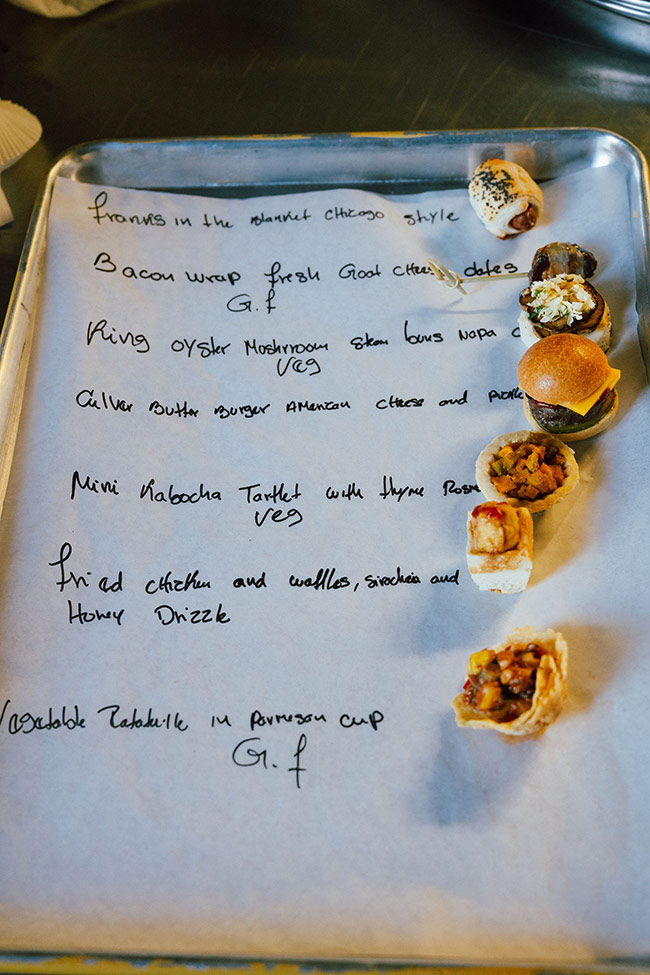 franks in the Blanket Chicago style
Bacon wrap fresh Goat Chees dates
G.f
King oyster Moshroom steam bouns Napa c
Veg
Culver Butter Burger American cheese and Pickle
Mini Kabocha Tartlet with thyme Rosm
Veg
fried chicken and waffles, siracha and
Honey Drizzle
Vegetable Ratatuille in parmesan cup
G.f